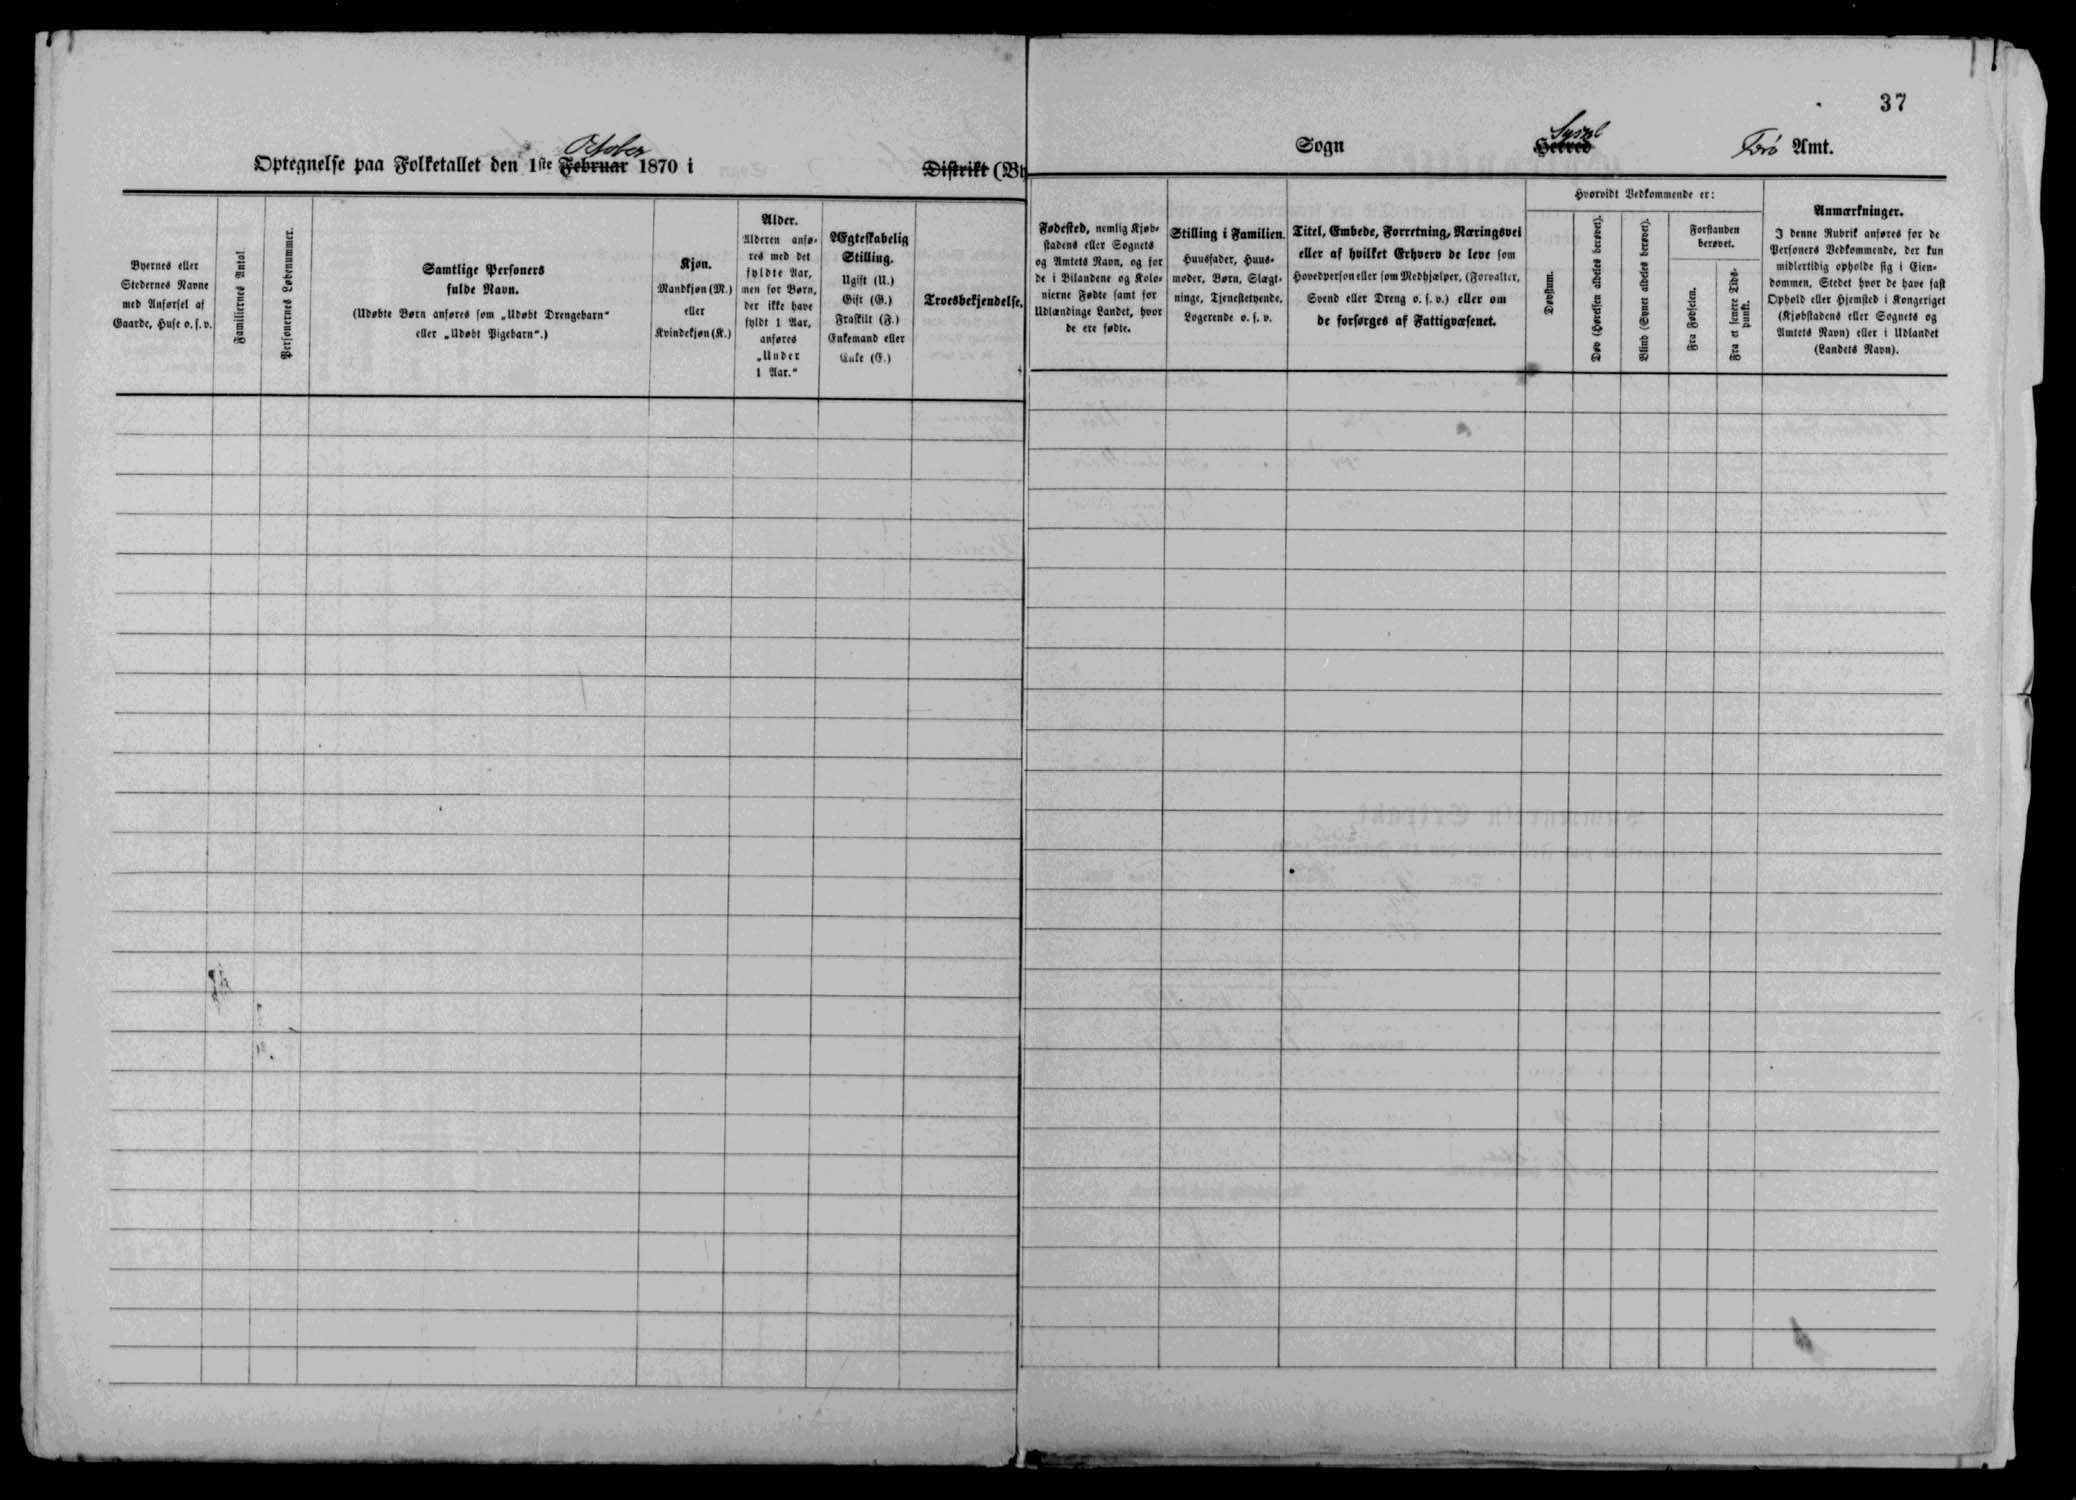 37
Optegnelse paa Folketallet den 1ste Februar October 1870 i
Distrikt (By
Sogn
Herred Syssel
Færø Amt.
Byernes eller
Stedernes Navne
med Anførsel af
Gaarde, Huse o. s. v.
Familiernes Antal.
Personernes Løbenummer.
Samtlige Personers
fulde Navn.
(Udøbte Børn anføres som „Udøbt Drengebarn“
eller „Udøbt Pigebarn“.)
Kjøn.
Mandkjøn (M.)
eller
Kvindekjøn (K.)
Alder.
Alderen anfø-
res med det
fyldte Aar,
men for Børn,
der ikke have
fyldt 1 Aar,
anføres
„Under
1 Aar.“
Ægteskabelig
Stilling.
Ugift (U.)
Gift (G.)
Fraskilt (F.)
Enkemand eller
Enke (E.)
Troesbekjendelse.
Fødested, nemlig Kjøb-
stadens eller Sognets
og Amtets Navn, og for
de i Bilandene og Kolo-
nierne Fødte samt for
Udlændinge Landet, hvor
de ere fødte.
Stilling i Familien.
Huusfader, Huus-
moder, Børn, Slægt-
ninge, Tjenestetyende,
Logerende o. s. v.
Titel, Embede, Forretning, Næringsvei
eller af hvilket Erhverv de leve som
Hovedperson eller som Medhjælper, (Forvalter,
Svend eller Dreng o. s. v.) eller om
de forsørges af Fattigvæsenet.
Hvorvidt Vedkommende er:
Døvstum.
Døv (Hørelsen aldeles berøvet).
Blind (Synet aldeles berøvet).
Forstanden
berøvet.
Fra Fødselen.
Fra et senere Tids-
punkt.
Anmærkninger.
I denne Rubrik anføres for de
Personers Vedkommende, der kun
midlertidig opholde sig i Eien-
dommen, Stedet hvor de have fast
Ophold eller Hjemsted i Kongeriget
(Kjøbstadens eller Sognets og
Amtets Navn) eller i Udlandet
(Landets Navn).